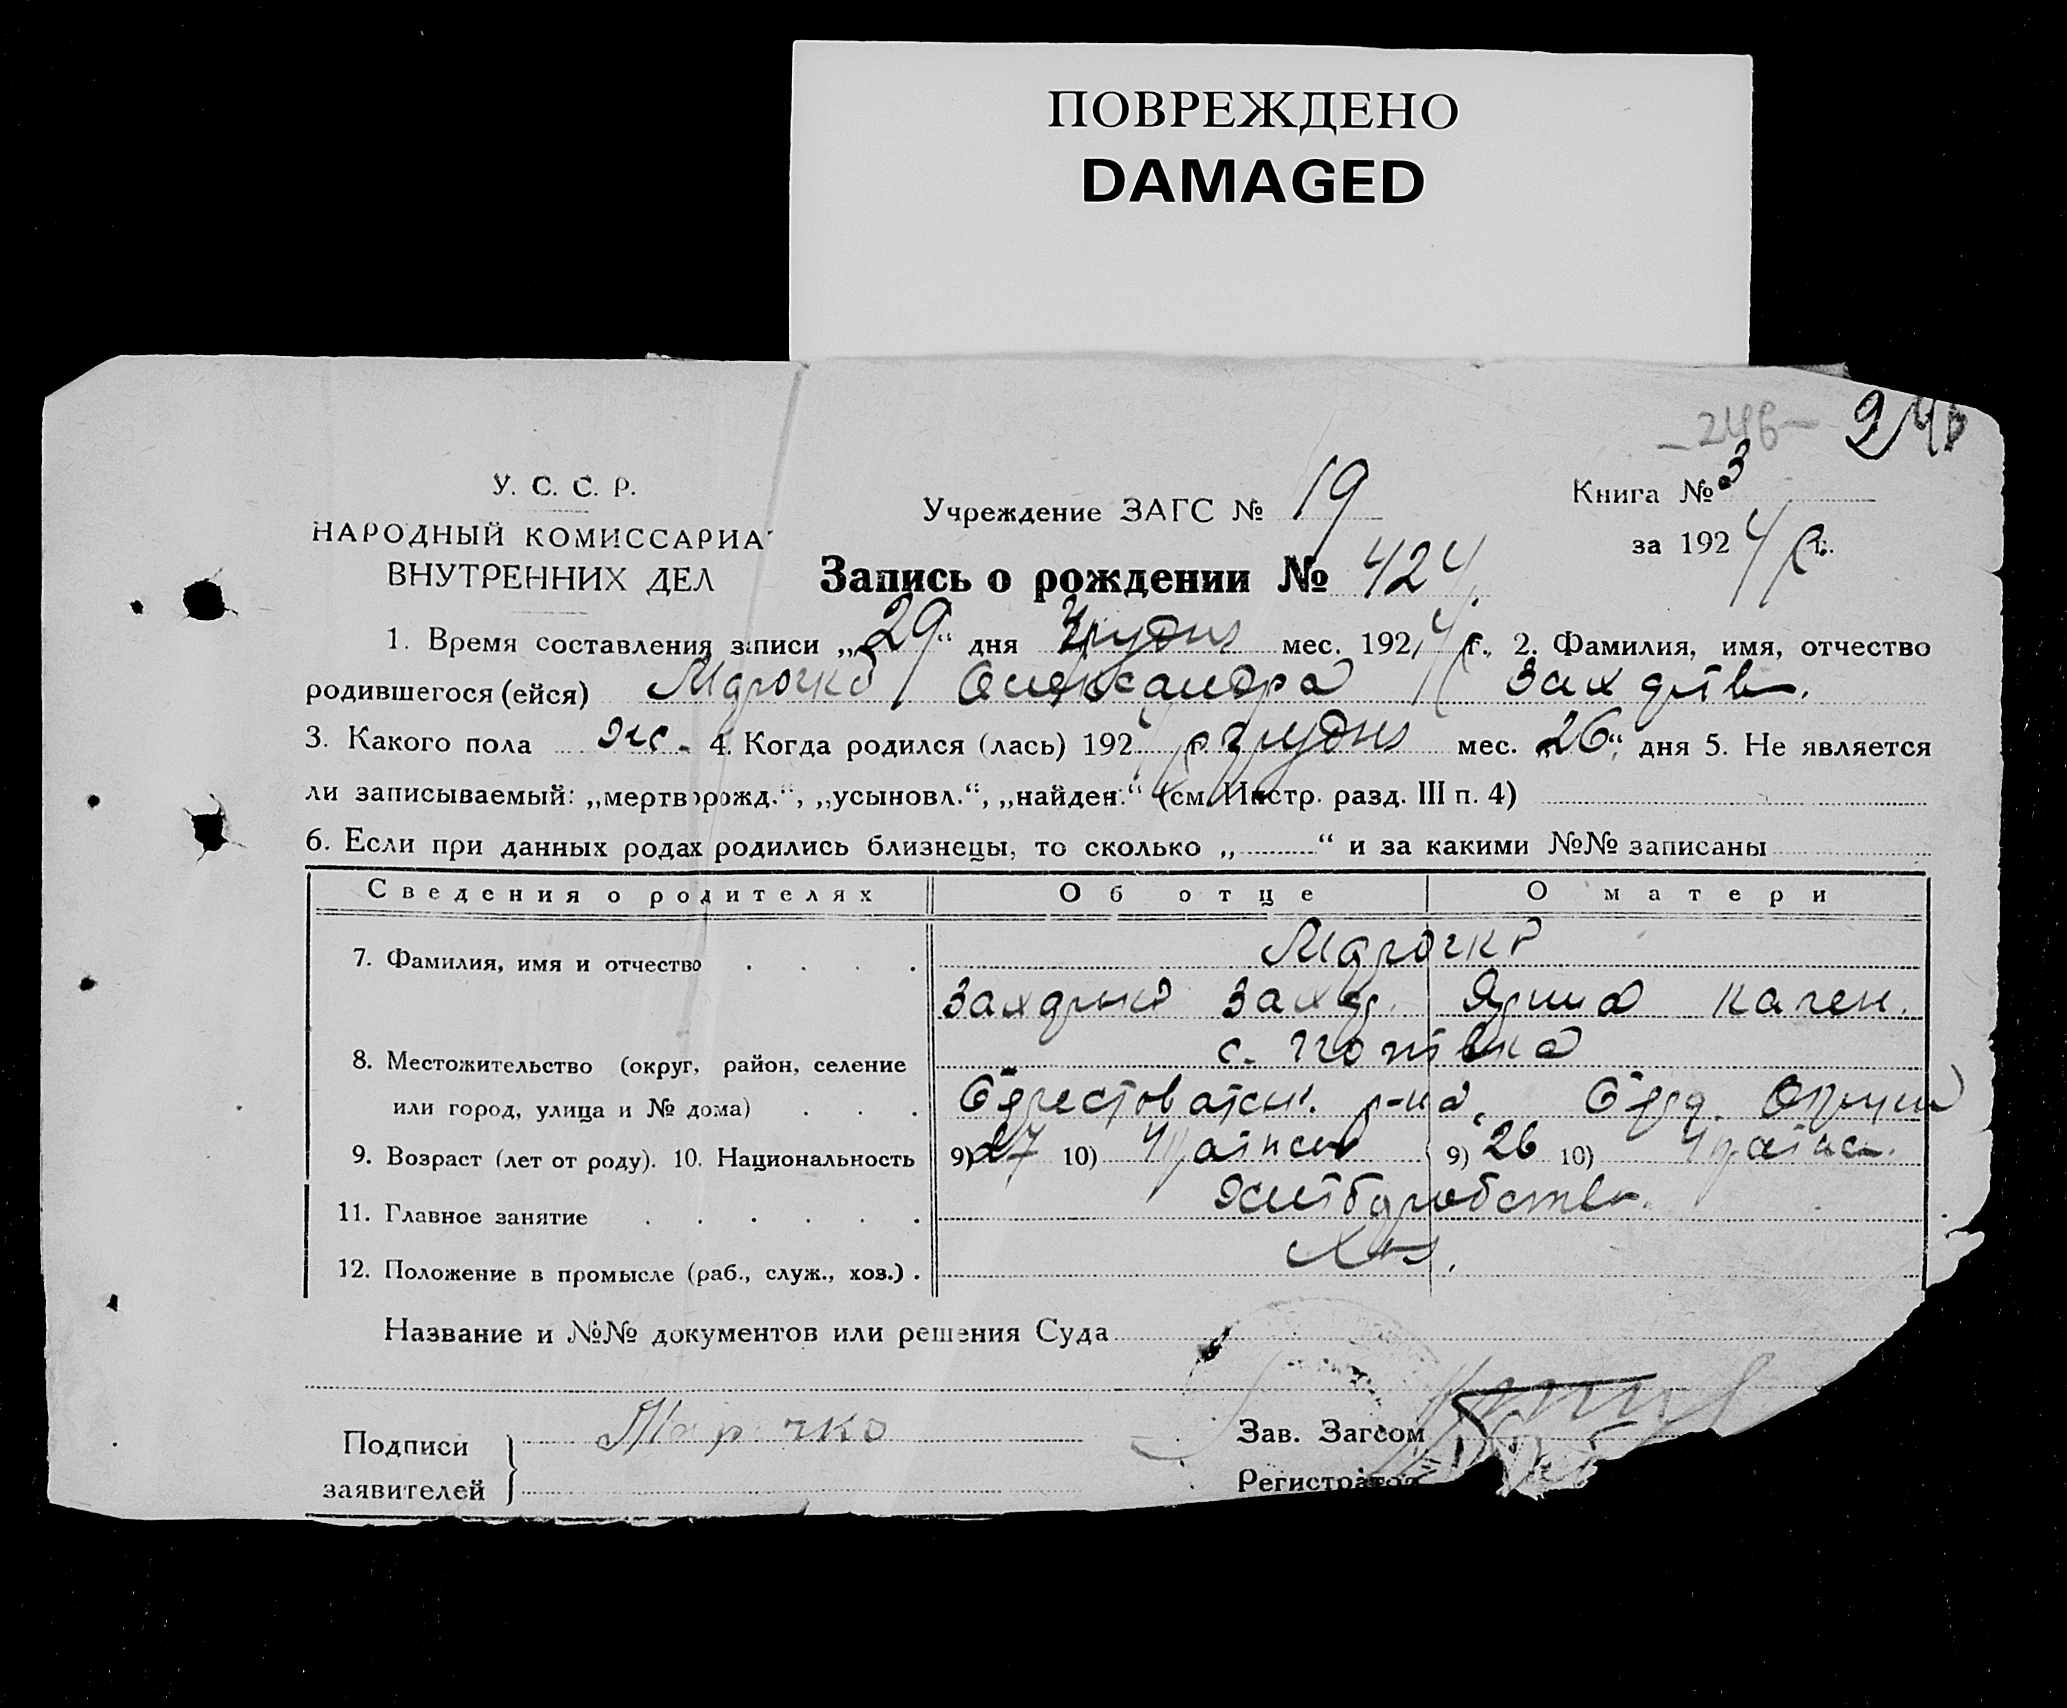 ПОВРЕЖДЕНО
DAMAGED
-246-
У. С. С. Р.
НАРОДНЫЙ КОМИССАРИАТ
ВНУТРЕННИХ ДЕЛ
Учреждение ЗАГС № 19
Книга № 3
за 1924 г.
Запись о рождении № 424
1. Время составления записи „29“ дня Грудня мес. 1924 г., 2. Фамилия, имя, отчество
родившегося (ейся) Марочко Олександра Захарів.
3. Какого пола жс. 4. Когда родился (лась) 1924 р грудня мес. „26“, дня 5. Не является
ли записываемый: „мертворожд.“, „усыновл.“, „найден.“ (см. Инстр. разд. III п. 4)
6. Если при данных родах родились близнецы, то сколько „ “ и за какими №№ записаны
Сведения о родителях Об отце О матери
7. Фамилия, имя и отчество Марочко
Захарко Захар. Ярина
8. Местожительство (округ, район, селение с.
или город, улица и № дома) Берестоватськ. р-на, Берд. Округи
9. Возраст (лет от роду). 10. Национальность 9) 27 10) Українськ 9) 26 10) Українськ.
11. Главное занятие Хліборобство.
12. Положение в промысле (раб., служ., хоз.).
Название и №№ документов или решения Суда
Подписи заявителей Марочко
Зав. Загсом
Регистратор